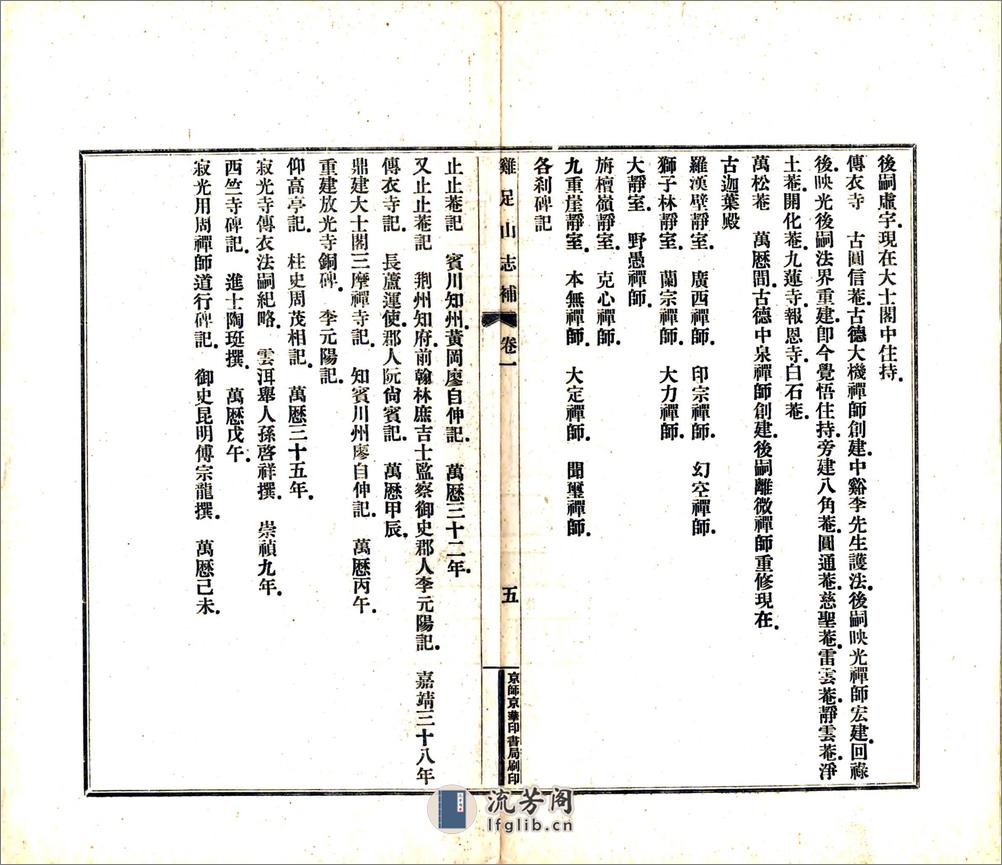 後嗣虛宇.現在大士閣中住持.
傳衣寺　古圓信菴.古德大機禪師創建.中谿李先生護法.後嗣映光禪師宏建.回祿
後.映光後嗣法界重建.卽今覺悟住持.旁建八角菴.圓通菴.慈聖菴.雷雲菴.靜雲菴.淨
土菴.開化菴.九蓮寺.報恩寺.白石菴.
萬松菴　萬曆間.古德中泉禪師創建.後嗣離微禪師重修.現在.
古迦葉殿
羅漢壁靜室.　廣西禪師.　印宗禪師.　幻空禪師.
獅子林靜室.　蘭宗禪師.　大力禪師.
大靜室.　野愚禪師.
旃檀嶺靜室.　克心禪師.
九重崖靜室.　本無禪師.　大定禪師.　聞璽禪師.
各刹碑記
雞足山志補　卷一　五　京師京華印書局刷印
止止菴記　賓川知州黃岡廖自伸記.　萬曆三十二年.
又止止菴記　荆州知府.前翰林庶吉士監察御史.郡人李元陽記.　嘉靖三十八年
傳衣寺記.　長蘆運使.郡人阮尙賓記.　萬曆甲辰.
鼎建大士閣三摩禪寺記.　知賓川州廖自伸記.　萬曆丙午.
重建放光寺銅碑.　李元陽記.
仰高亭記.　柱史周茂相記.　萬曆三十五年.
寂光寺傳衣法嗣紀略.　雲洱舉人孫啓祥撰.　崇禎九年.
西竺寺碑記.　進士陶珽撰.　萬曆戊午.
寂光用周禪師道行碑記.　御史昆明傅宗龍撰.　萬曆己未.
流芳阁
lfglib.cn